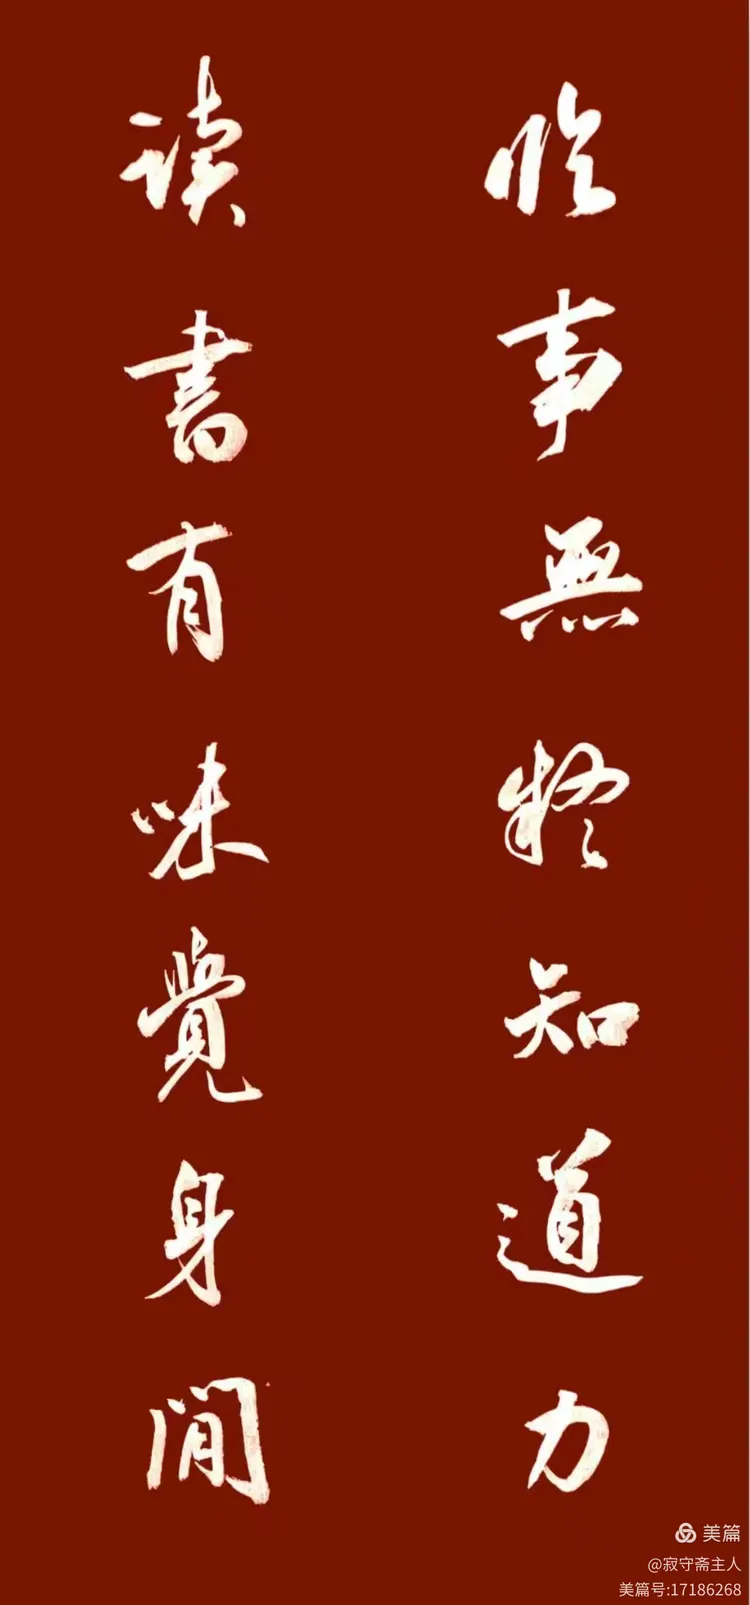 临事無疑知道力
读書有味覺身閒
美篇
@寂守斋主人
美篇号:17186268